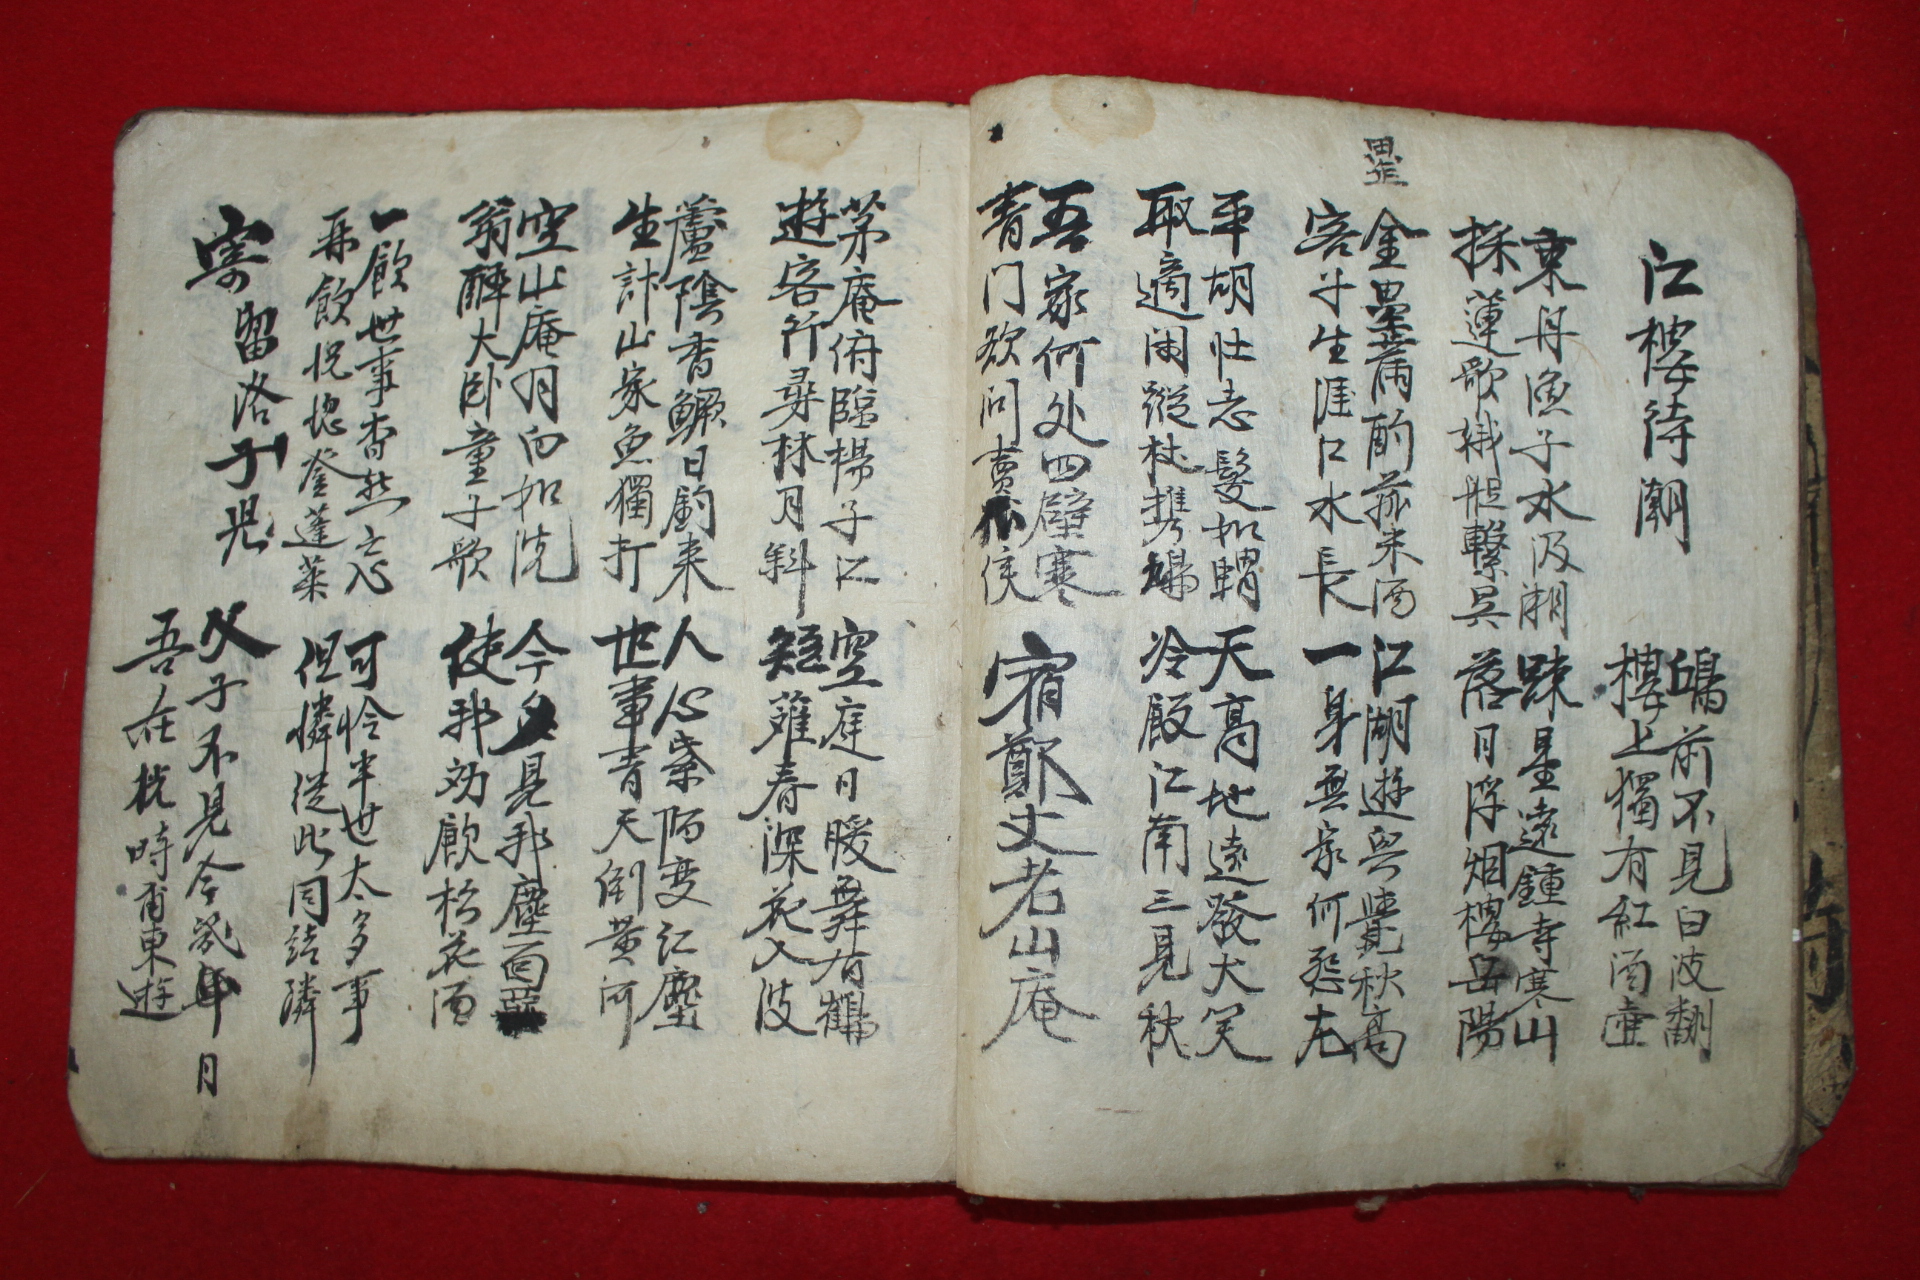 江樓待潮
鴟前不見白波翻
樓上獨有紅酒壺
東舟漁子水汲潮
採蓮歌娥艇繫吳
踈星遠鍾寺寒山
落日浮烟樓岳陽
罍
金罍滿酌菰米酒
客子生涯江水長
江湖遊興覺秋高
一身無家何怨尤
平胡壯志髮如蝟
取適閑蹤杖携鳩
天高地遠發大笑
冷殿江南三見秋
吾家何处四壁寒
青门欲问賣瓜侯
宿鄭丈老山庵
茅庵俯臨楊子江
遊客行尋林月斜
空庭日暖舞有鶴
短蘿春深花入波
蘆陰香鱖日釣来
生計山家魚獨打
人心紫陌变红塵
世事青天倒黄河
空山庵月白如洗
翁醉大卧童子歌
今夕見我塵面
使我効飲松花酒
一飮世事杳然忘
再飮怳惚登蓬萊
可怜半世太多事
但憐從此同結隣
寄留洛子児
父子不見今幾年月
吾在枕時甫東遊